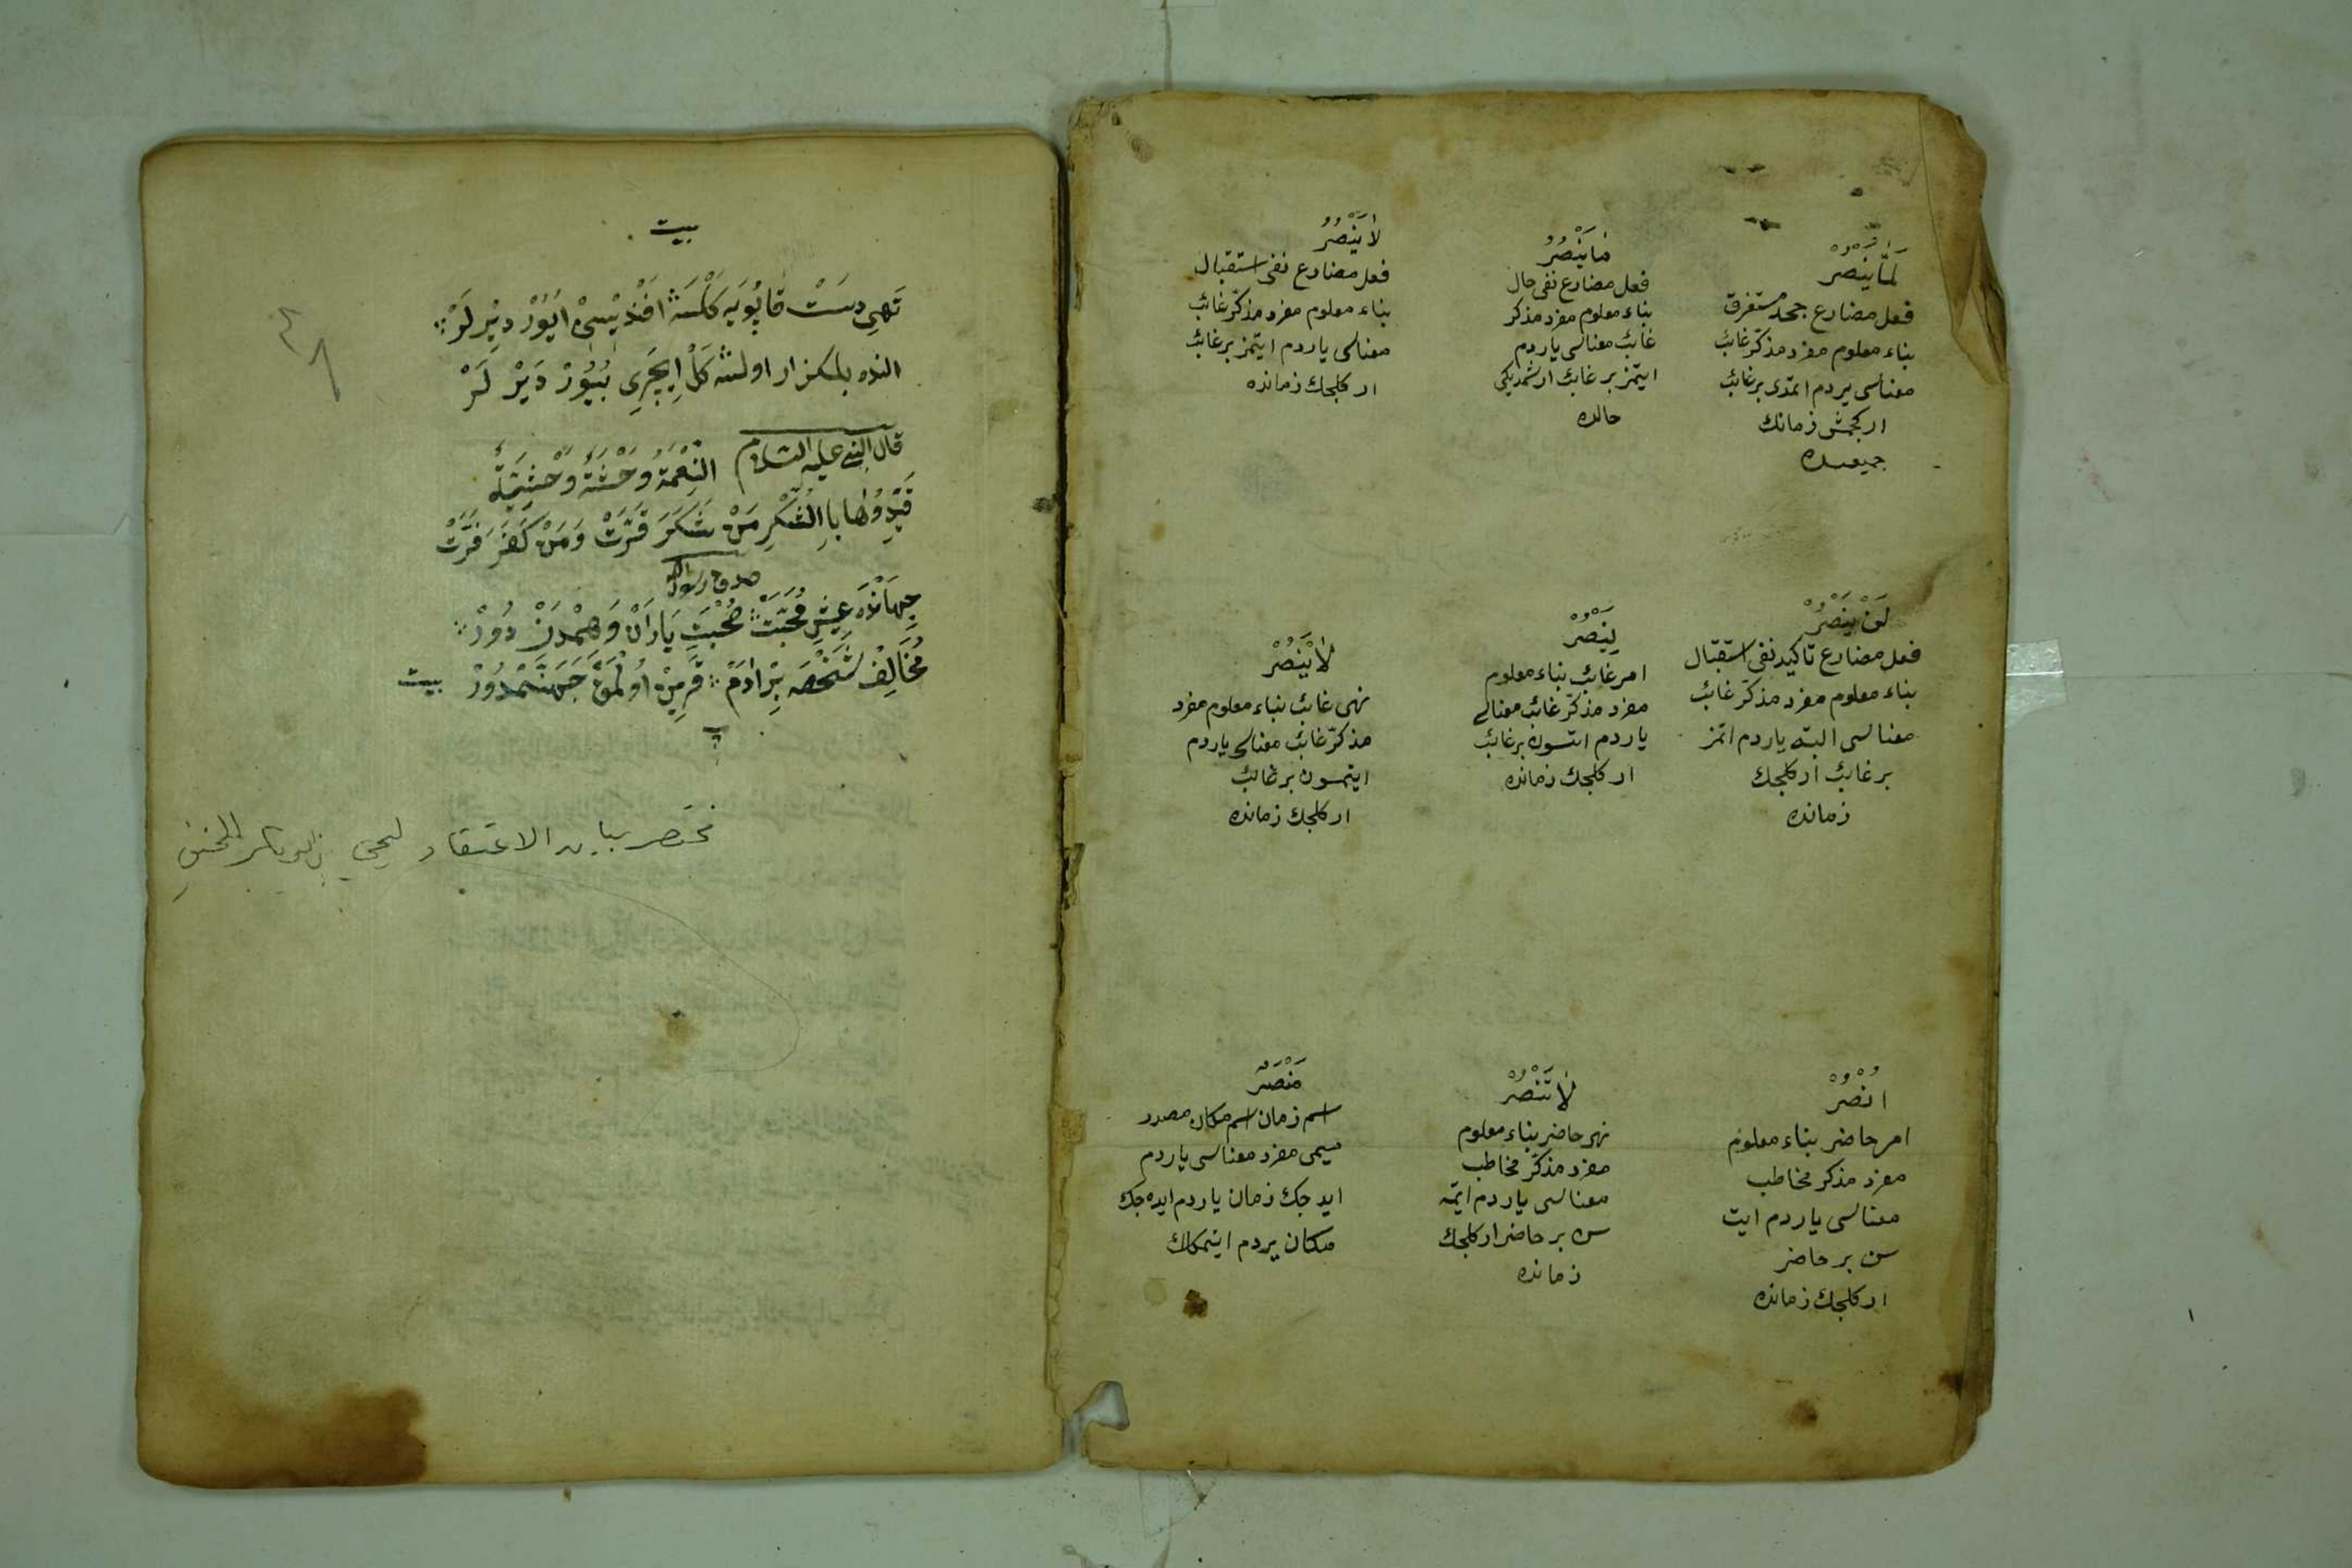 لَمَّا يَنْصُرْ
فعل مضارع جحد مستغرق
بناء معلوم مفرد مذكّر غائب
معناسى يردم اتمدى بر غائب
ار كچمش زمانك
جميعسنده
مَا يَنْصُرُ
فعل مضارع نفى حال
بناء معلوم مفرد مذكر
غائب معناسى ياردم
ايتمز بر غائب ار شمديكى
حالده
لَا يَنْصُرُ
فعل مضارع نفى استقبال
بناء معلوم مفرد مذكّر غائب
معناسى ياردم ايتمز بر غائب
ار كلجك زمانده
لَنْ يَنْصُرَ
فعل مضارع تأكيد نفى استقبال
بناء معلوم مفرد مذكّر غائب
معناسى البته ياردم اتمز
بر غائب ار كلجك
زمانده
لِيَنْصُرْ
امر غائب بناء معلوم
مفرد مذكّر غائب معناسى
ياردم اتسون بر غائب
ار كلجك زمانده
لَا يَنْصُرْ
نهى غائب بناء معلوم مفرد
مذكّر غائب معناسى ياردم
ايتمسون بر غائب
ار كلجك زمانده
اُنْصُرْ
امر حاضر بناء معلوم
مفرد مذكر مخاطب
معناسى ياردم ايت
سن بر حاضر
ار كلجك زمانده
لَا تَنْصُرْ
نهى حاضر بناء معلوم
مفرد مذكّر مخاطب
معناسى ياردم ايتمه
سن بر حاضر ار كلجك
زمانده
مَنْصَرٌ
اسم زمان اسم مكان مصدر
ميمى مفرد معناسى ياردم
ايدجك زمان ياردم ايده جك
مكان يردم ايتمكلك
بيت
تَهِى دَسَتْ قَاپُويَه كَلْسَه اَفَنْدِيْسِىْ اُيُوْر دِيْرلَرْ
النده اولسه كَلْ اِيچَرِى بُيُوْر دَيْر لَرْ
قال النبى عليه السلام النِّعْمَةُ وَحْشَةٌ وَحْشِيَّةٌ
قَيِّدُوهَا بِالشُّكْرِ مَنْ شَكَرَ قَرَّتْ وَمَنْ كَفَرَ فَرَّتْ
صدق رسول الله
جِهَانْدَه عَيْشِ مُحَبَّتْ صُحْبَتِ يَارَانْ وَهَمْدَن دُورْ
مُخَالِفْ شَخْصَه بِرْ اٰدَمْ قَرِينْ اُولْمَقْ جَهَنَّمْدُوْرْ بيت
مختصر بيان الاعتقاد ليحيى بن ابو بكر الحنفي